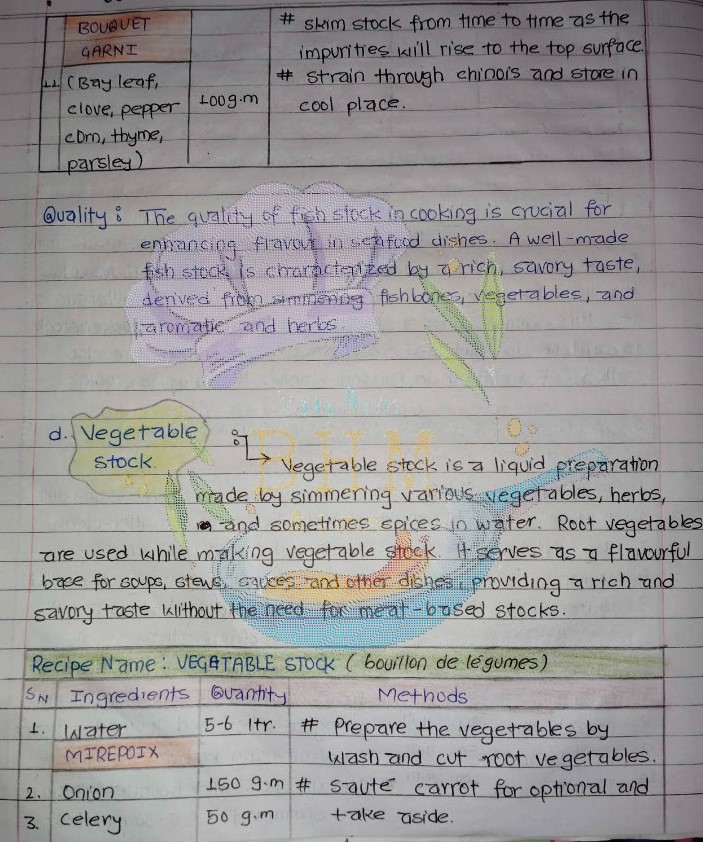 BOUQUET
GARNI
11 (Bay leaf,
clove, pepper
corn, thyme,
parsley)
100g.m
# skim stock from time to time as the
impurities will rise to the top surface
# strain through chinois and store in
cool place.
Quality: The quality of fish stock in cooking is crucial for
enhancing flavour in seafood dishes. A well-made
fish stock is characterized by a rich, savory taste,
derived from simmering fishbones, vegetables, and
aromatic and herbs.
BHM
d. Vegetable
stock
:↳ Vegetable stock is a liquid preparation
made by simmering various vegetables, herbs,
and sometimes spices in water. Root vegetables
are used while making vegetable stock. It serves as a flavourful
base for soups, stews, sauces and other dishes, providing a rich and
savory taste without the need for meat-based stocks.
Recipe Name: VEGATABLE STOCK (bouillon de légumes)
SN Ingredients Quantity Methods
1. Water 5-6 ltr. # Prepare the vegetables by
MIREPOIX wash and cut root vegetables.
2. Onion 150 g.m # saute carrot for optional and
3. Celery 50 g.m take aside.